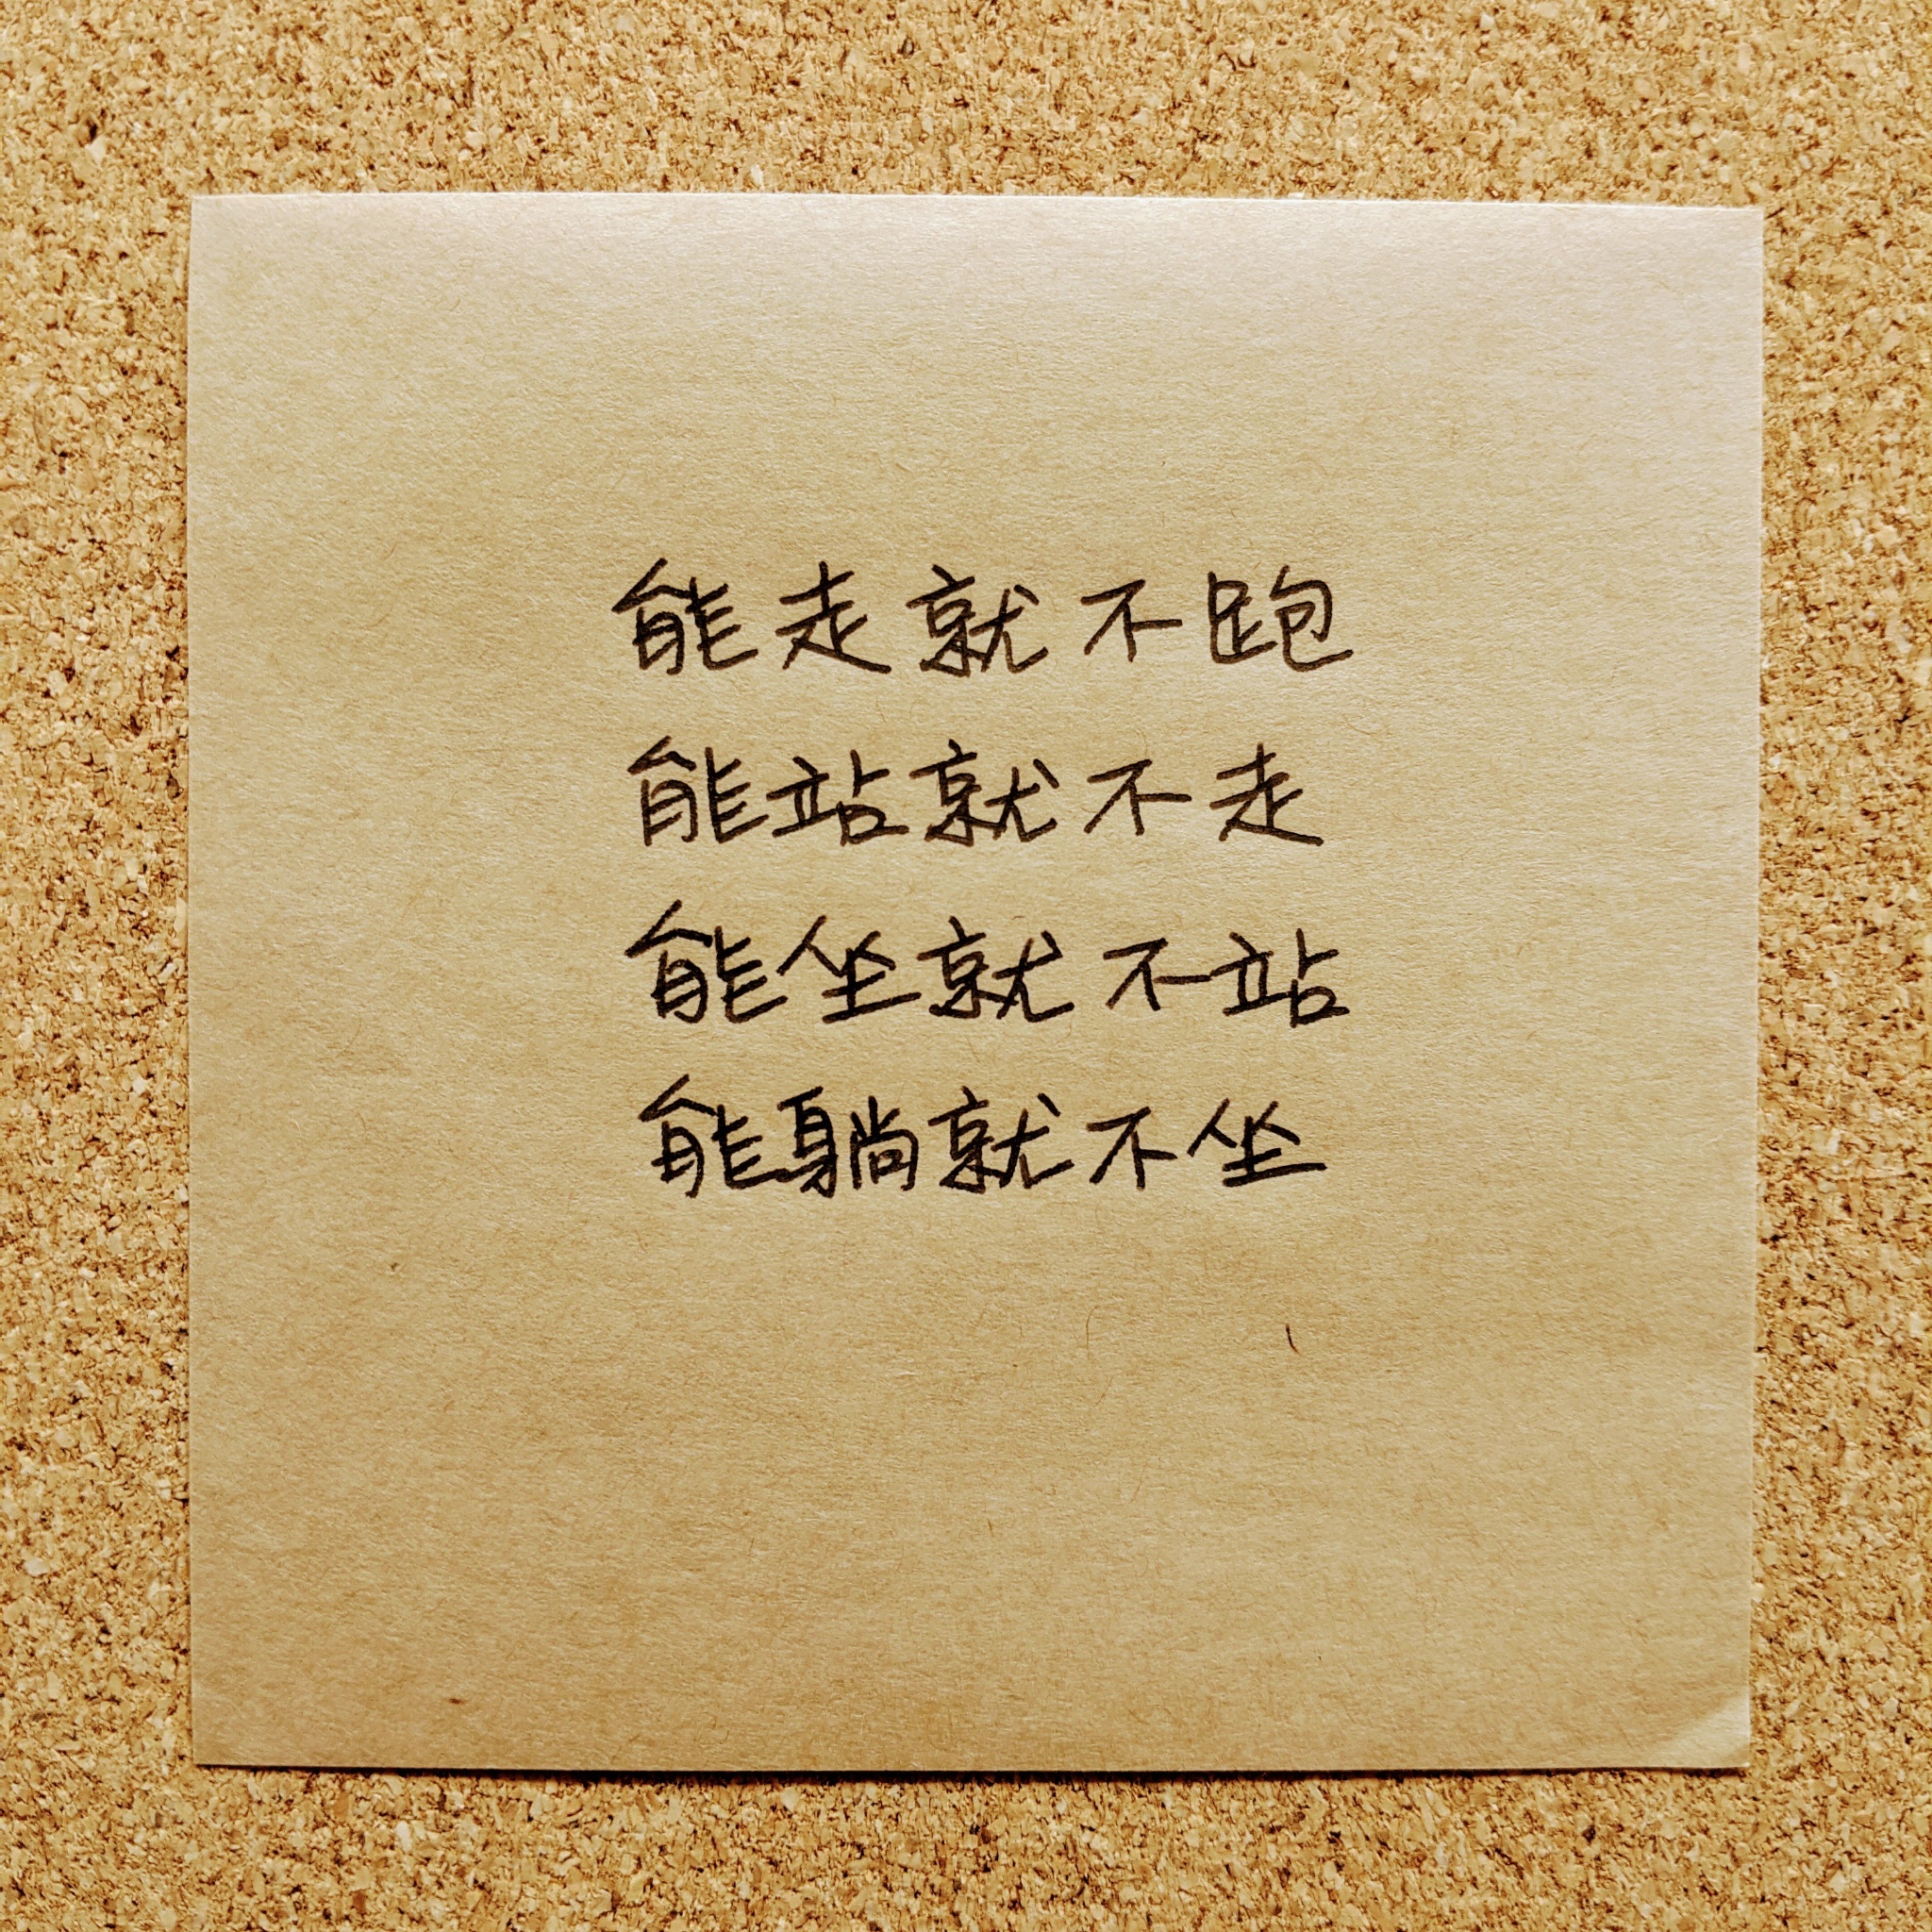 能走就不跑
能站就不走
能坐就不站
能躺就不坐